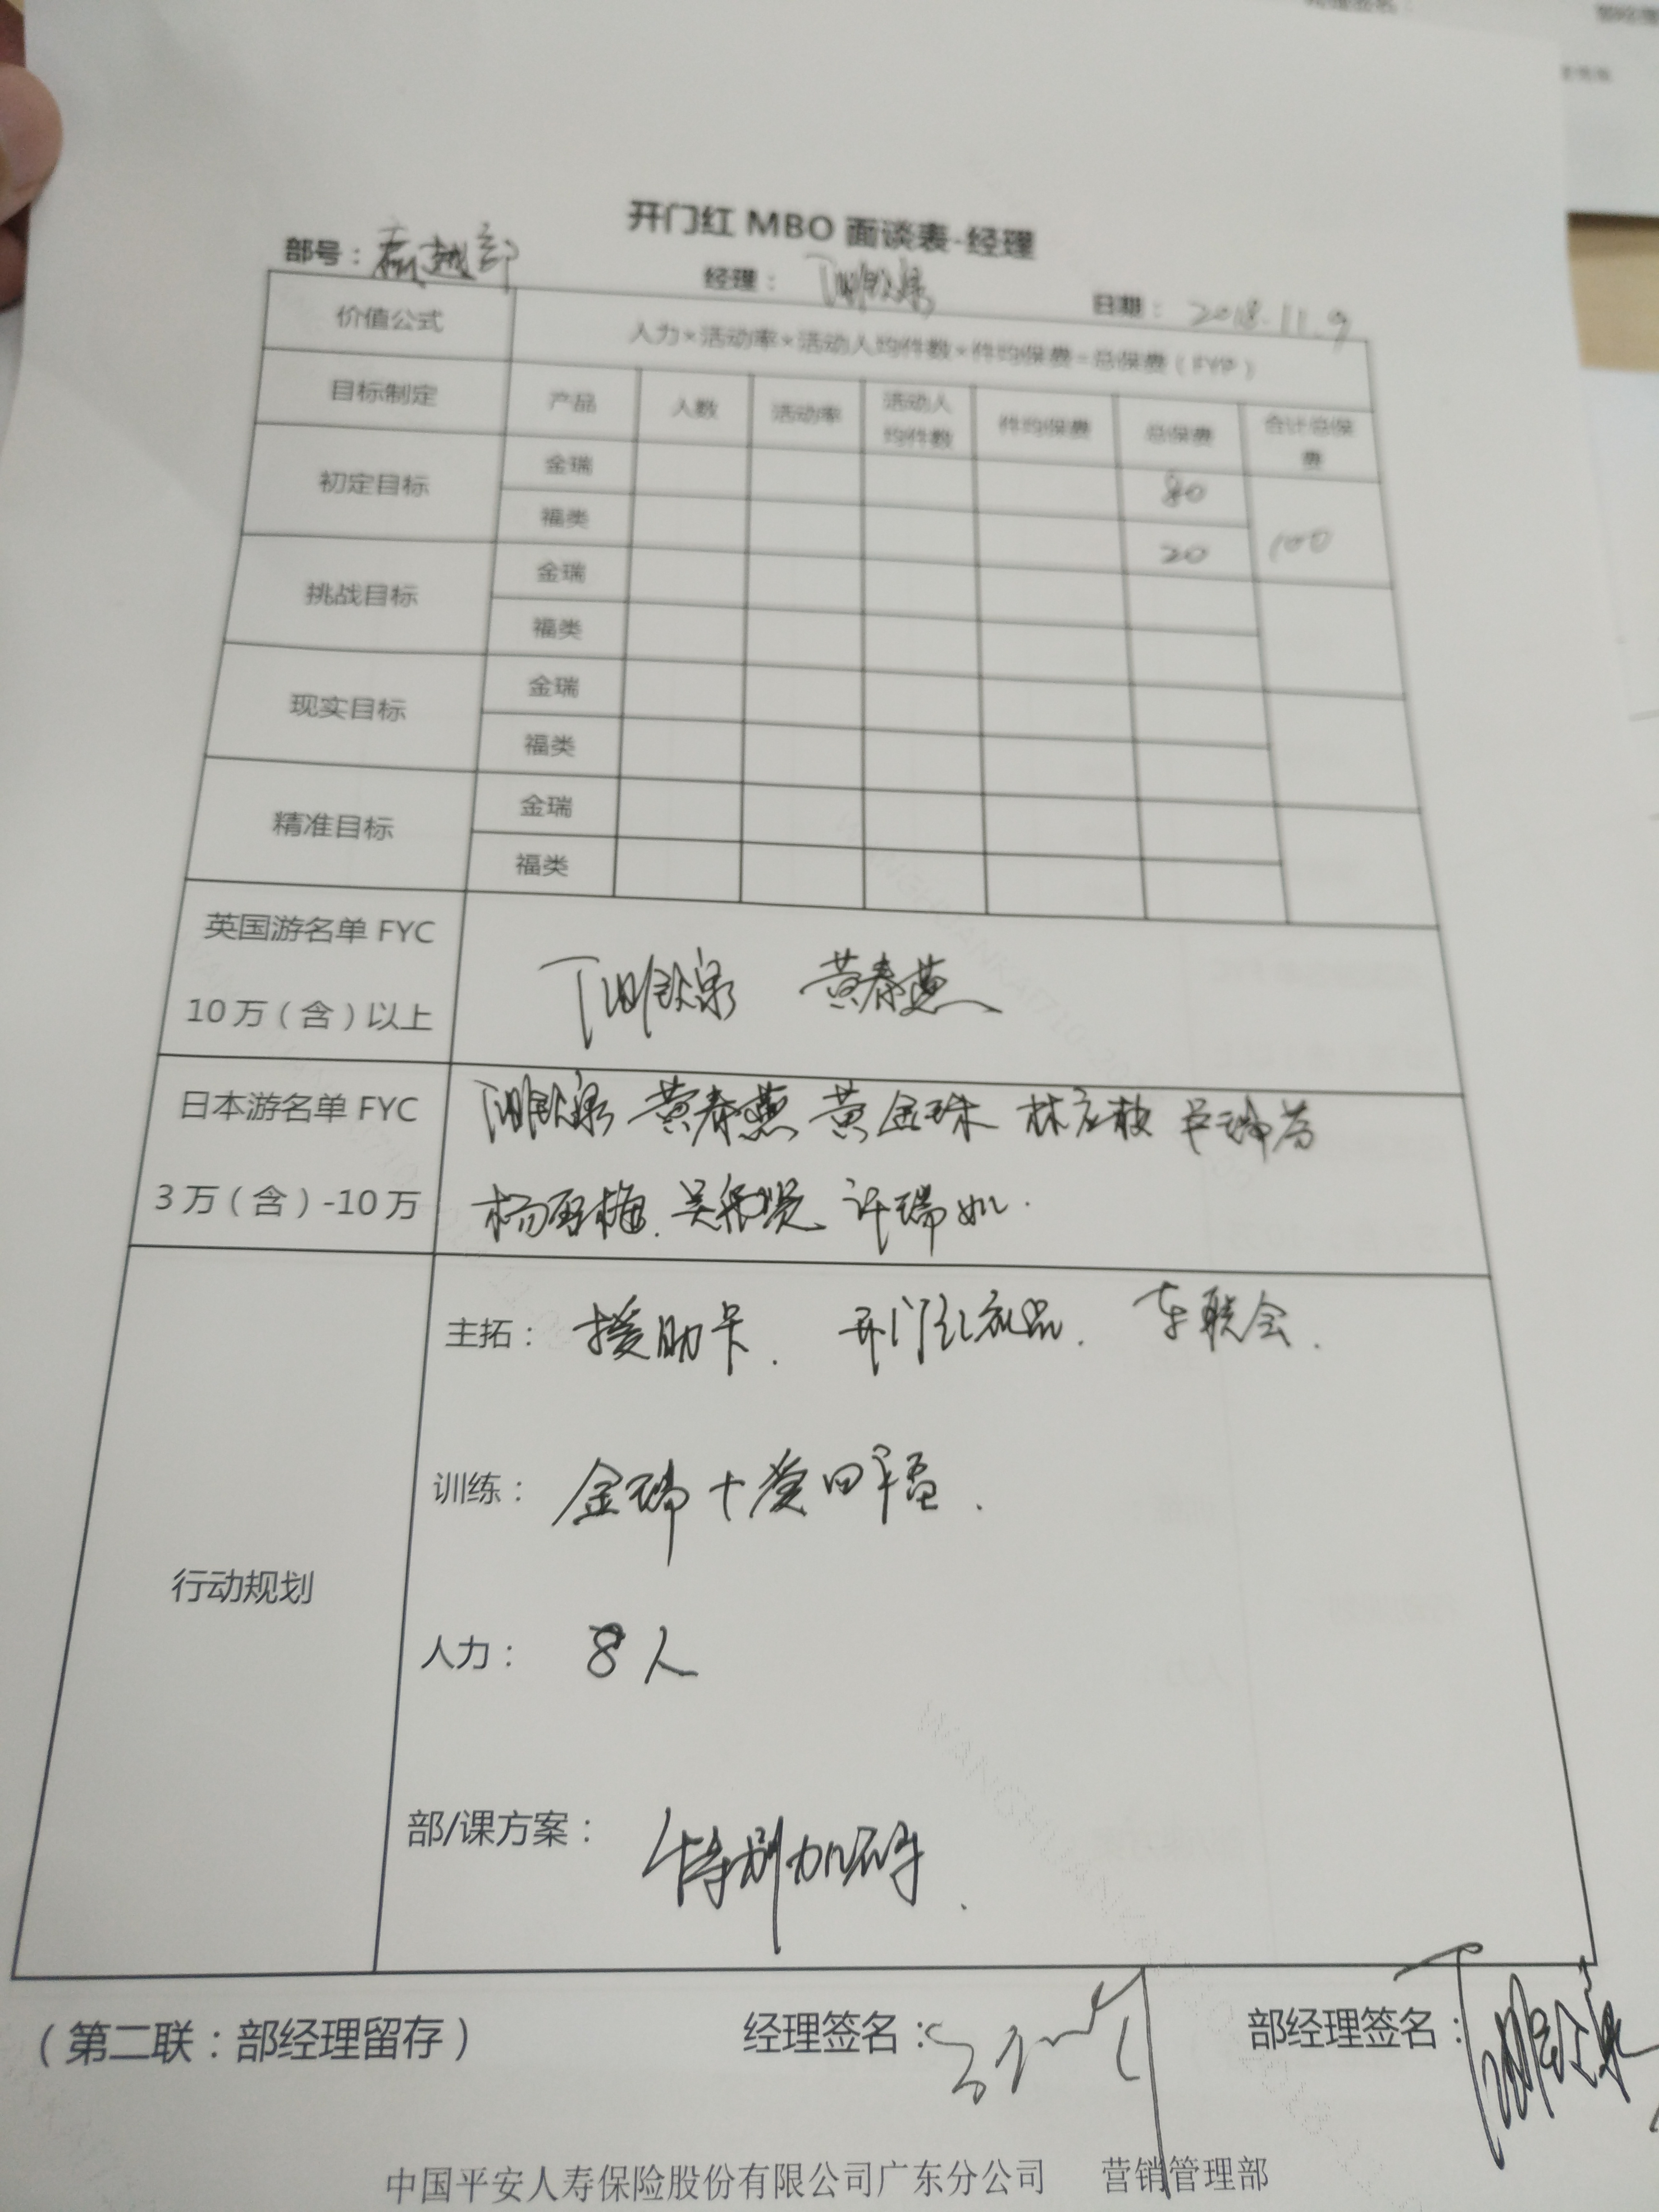 开门红 MBO 面谈表-经理
部号：赢越部 经理： 日期：2018.11.9
价值公式 人力*活动率*活动人均件数*件均保费=总保费（FYP）
目标制定 产品 人数 活动率 活动人均件数 件均保费 总保费 合计总保费
初定目标 金瑞 80 100
福类 20
挑战目标 金瑞
福类
现实目标 金瑞
福类
精准目标 金瑞
福类
英国游名单 FYC
10万（含）以上 黄春燕
日本游名单 FYC 黄春燕 黄金珠
3万（含）-10万 许瑞如.
行动规划
主拓：援助卡. 开门红礼品. 车联会.
训练：金瑞十
人力：8人
部/课方案：特别加码.
（第二联：部经理留存） 经理签名： 部经理签名：
中国平安人寿保险股份有限公司广东分公司 营销管理部